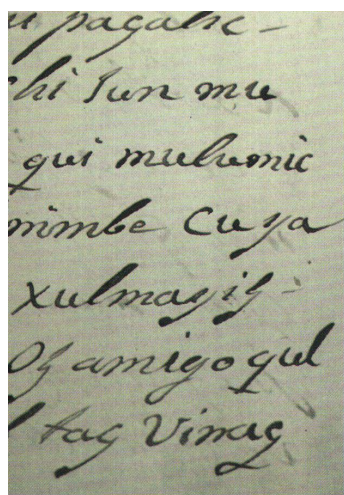 pagahc -
chi Jun mu
qui mulumic
nimbe Cuya
xulmayiz -
Oz amigo qul
tag Vinaq